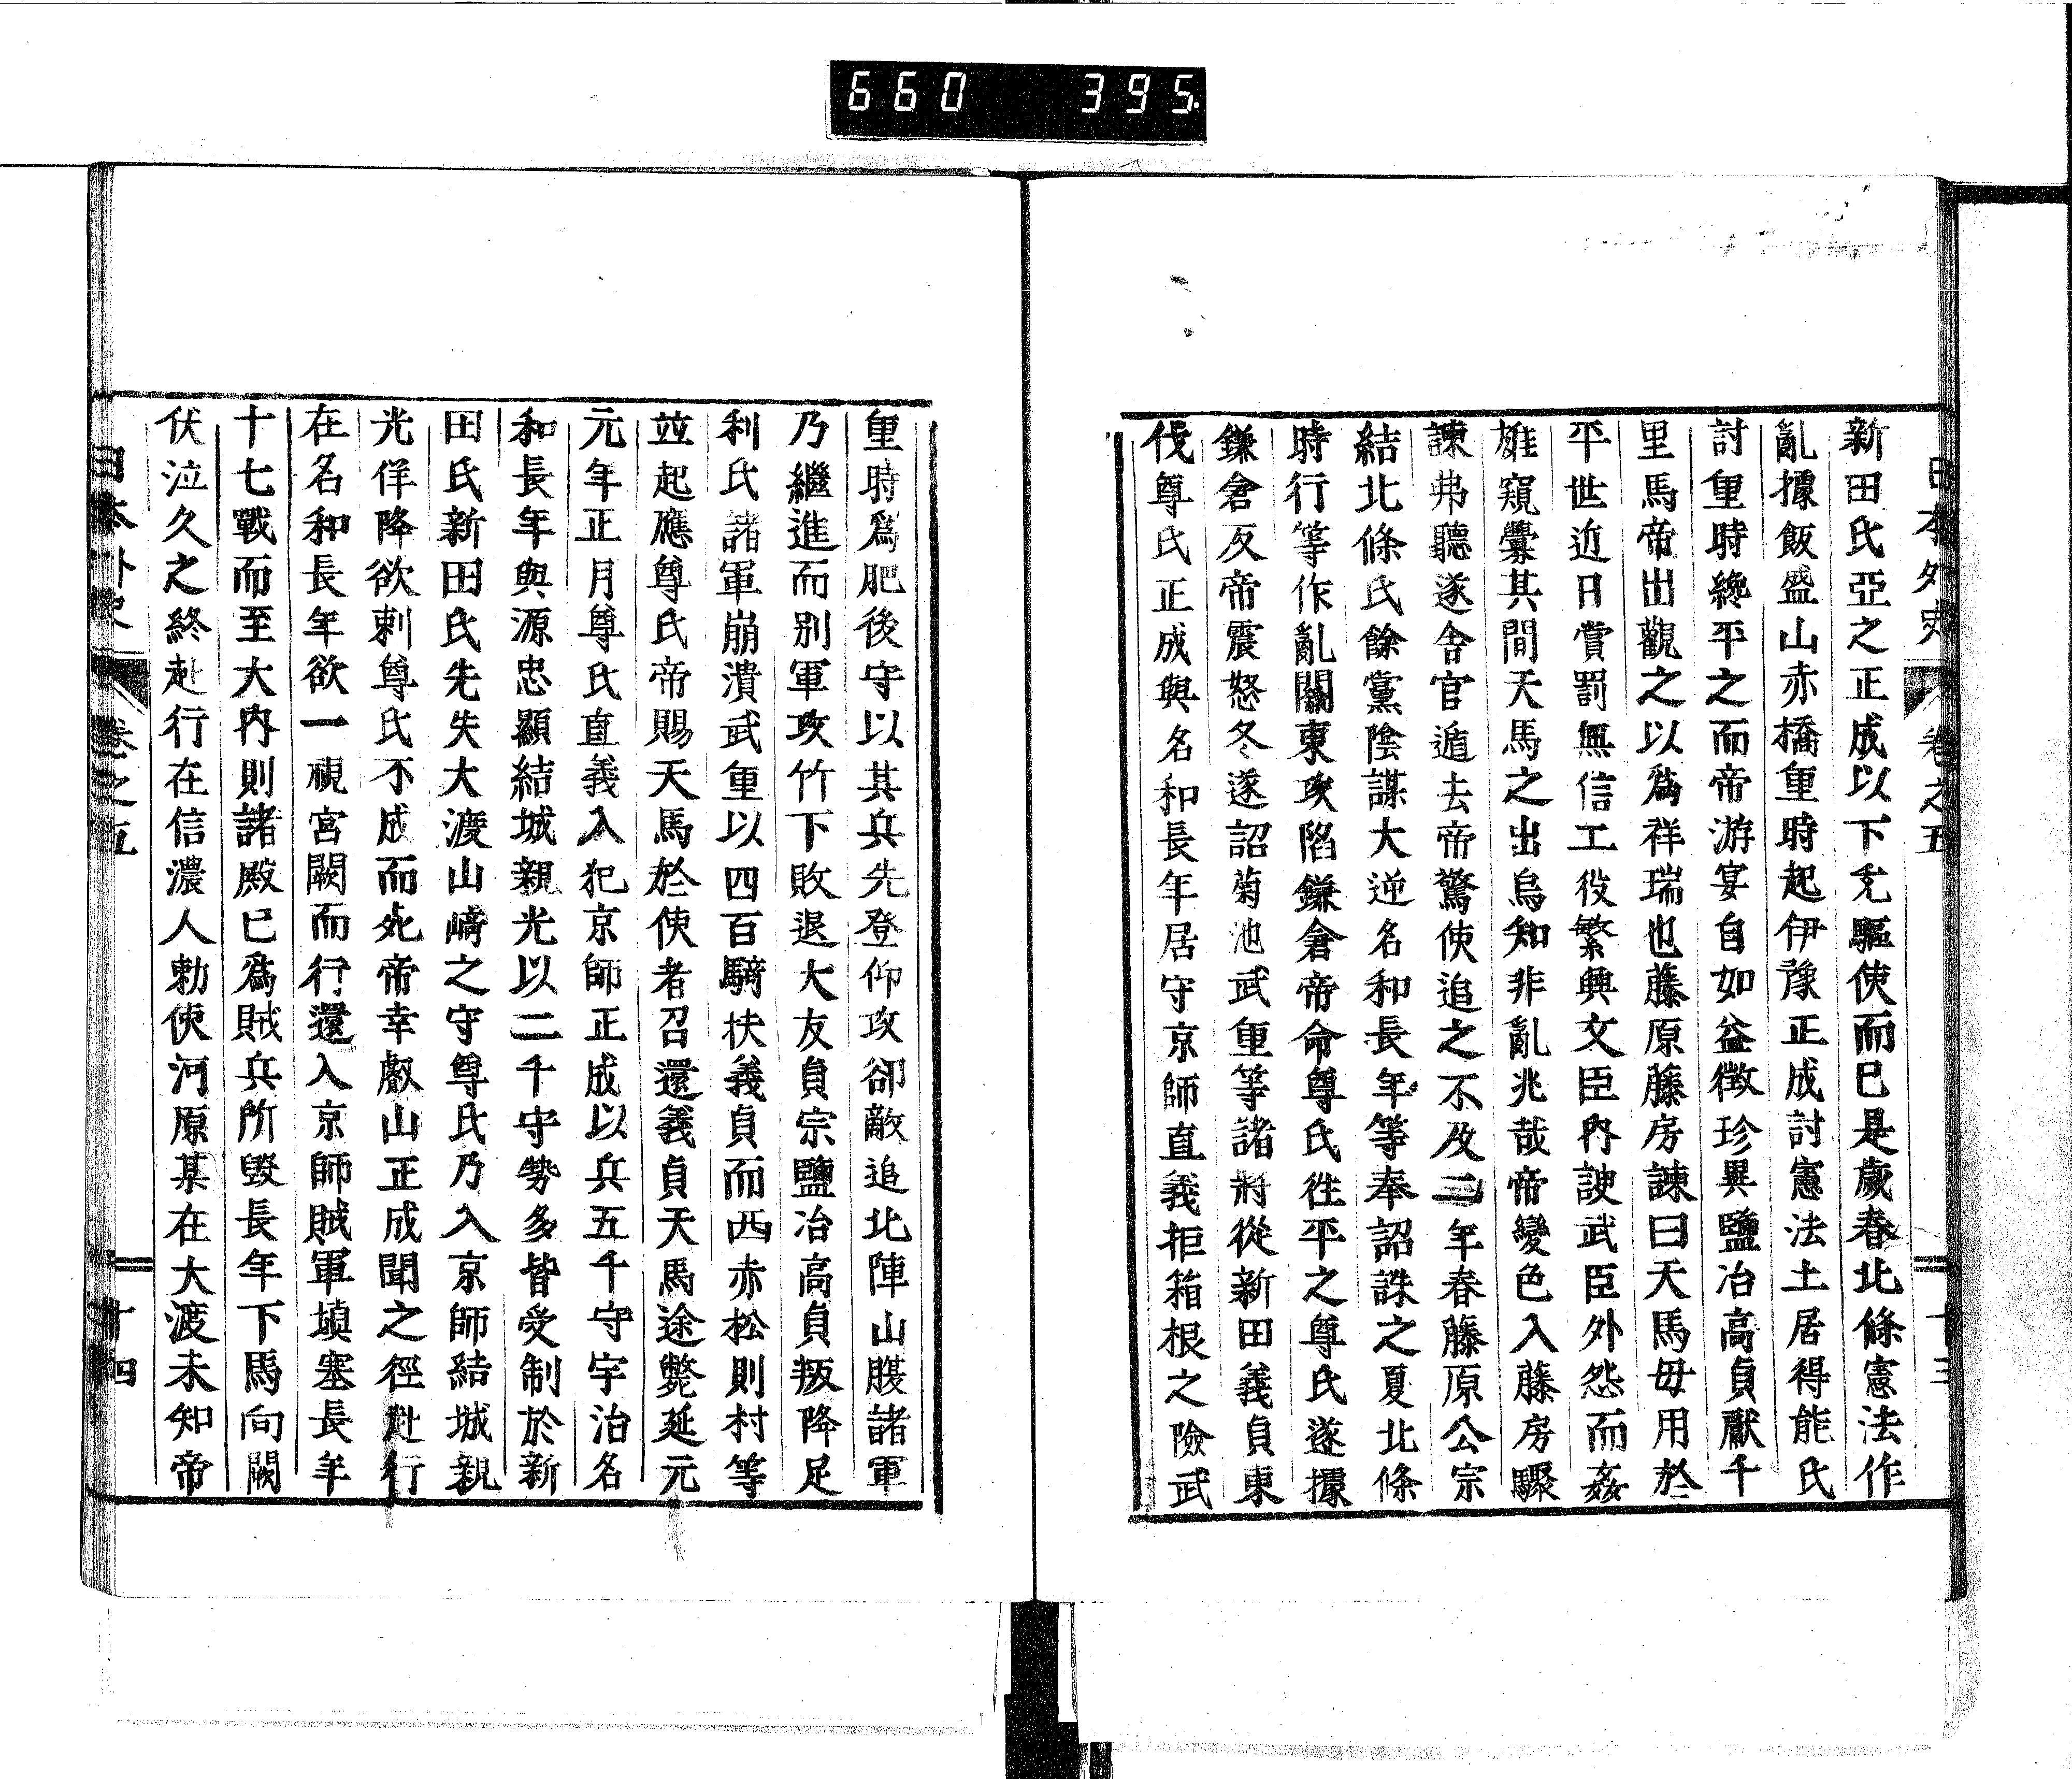 660 395
日本外史 卷之五 十三
新田氏亞之正成以下充驅使而已是歲春北條憲法作
亂據飯盛山赤橋重時起伊豫正成討憲法土居得能氏
討重時纔平之而帝游宴自如益徵珍異鹽冶高貞獻千
里馬帝出觀之以爲祥瑞也藤原藤房諫曰天馬毋用於
平世近日賞罰無信工役繁興文臣內諛武臣外怨而姦
雄窺釁其間天馬之出烏知非亂兆哉帝變色入藤房驟
諫弗聽遂舍官遁去帝驚使追之不及二年春藤原公宗
結北條氏餘黨陰謀大逆名和長年等奉詔誅之夏北條
時行等作亂關東攻陷鎌倉帝命尊氏往平之尊氏遂據
鎌倉反帝震怒冬遂詔菊池武重等諸將從新田義貞東
伐尊氏正成與名和長年居守京師直義拒箱根之險武
重時爲肥後守以其兵先登仰攻卻敵追北陣山腹諸軍
乃繼進而別軍攻竹下敗退大友貞宗鹽冶高貞叛降足
利氏諸軍崩潰武重以四百騎扶義貞而西赤松則村等
竝起應尊氏帝賜天馬於使者召還義貞天馬途斃延元
元年正月尊氏直義入犯京師正成以兵五千守宇治名
和長年與源忠顯結城親光以二千守勢多皆受制於新
田氏新田氏先失大渡山崎之守尊氏乃入京師結城親
光佯降欲刺尊氏不成而死帝幸叡山正成聞之徑赴行
在名和長年欲一視宮闕而行還入京師賊軍塡塞長年
十七戰而至大內則諸殿已爲賊兵所毀長年下馬向闕
伏泣久之終赴行在信濃人勅使河原某在大渡未知帝
日本外史 卷之五 十四